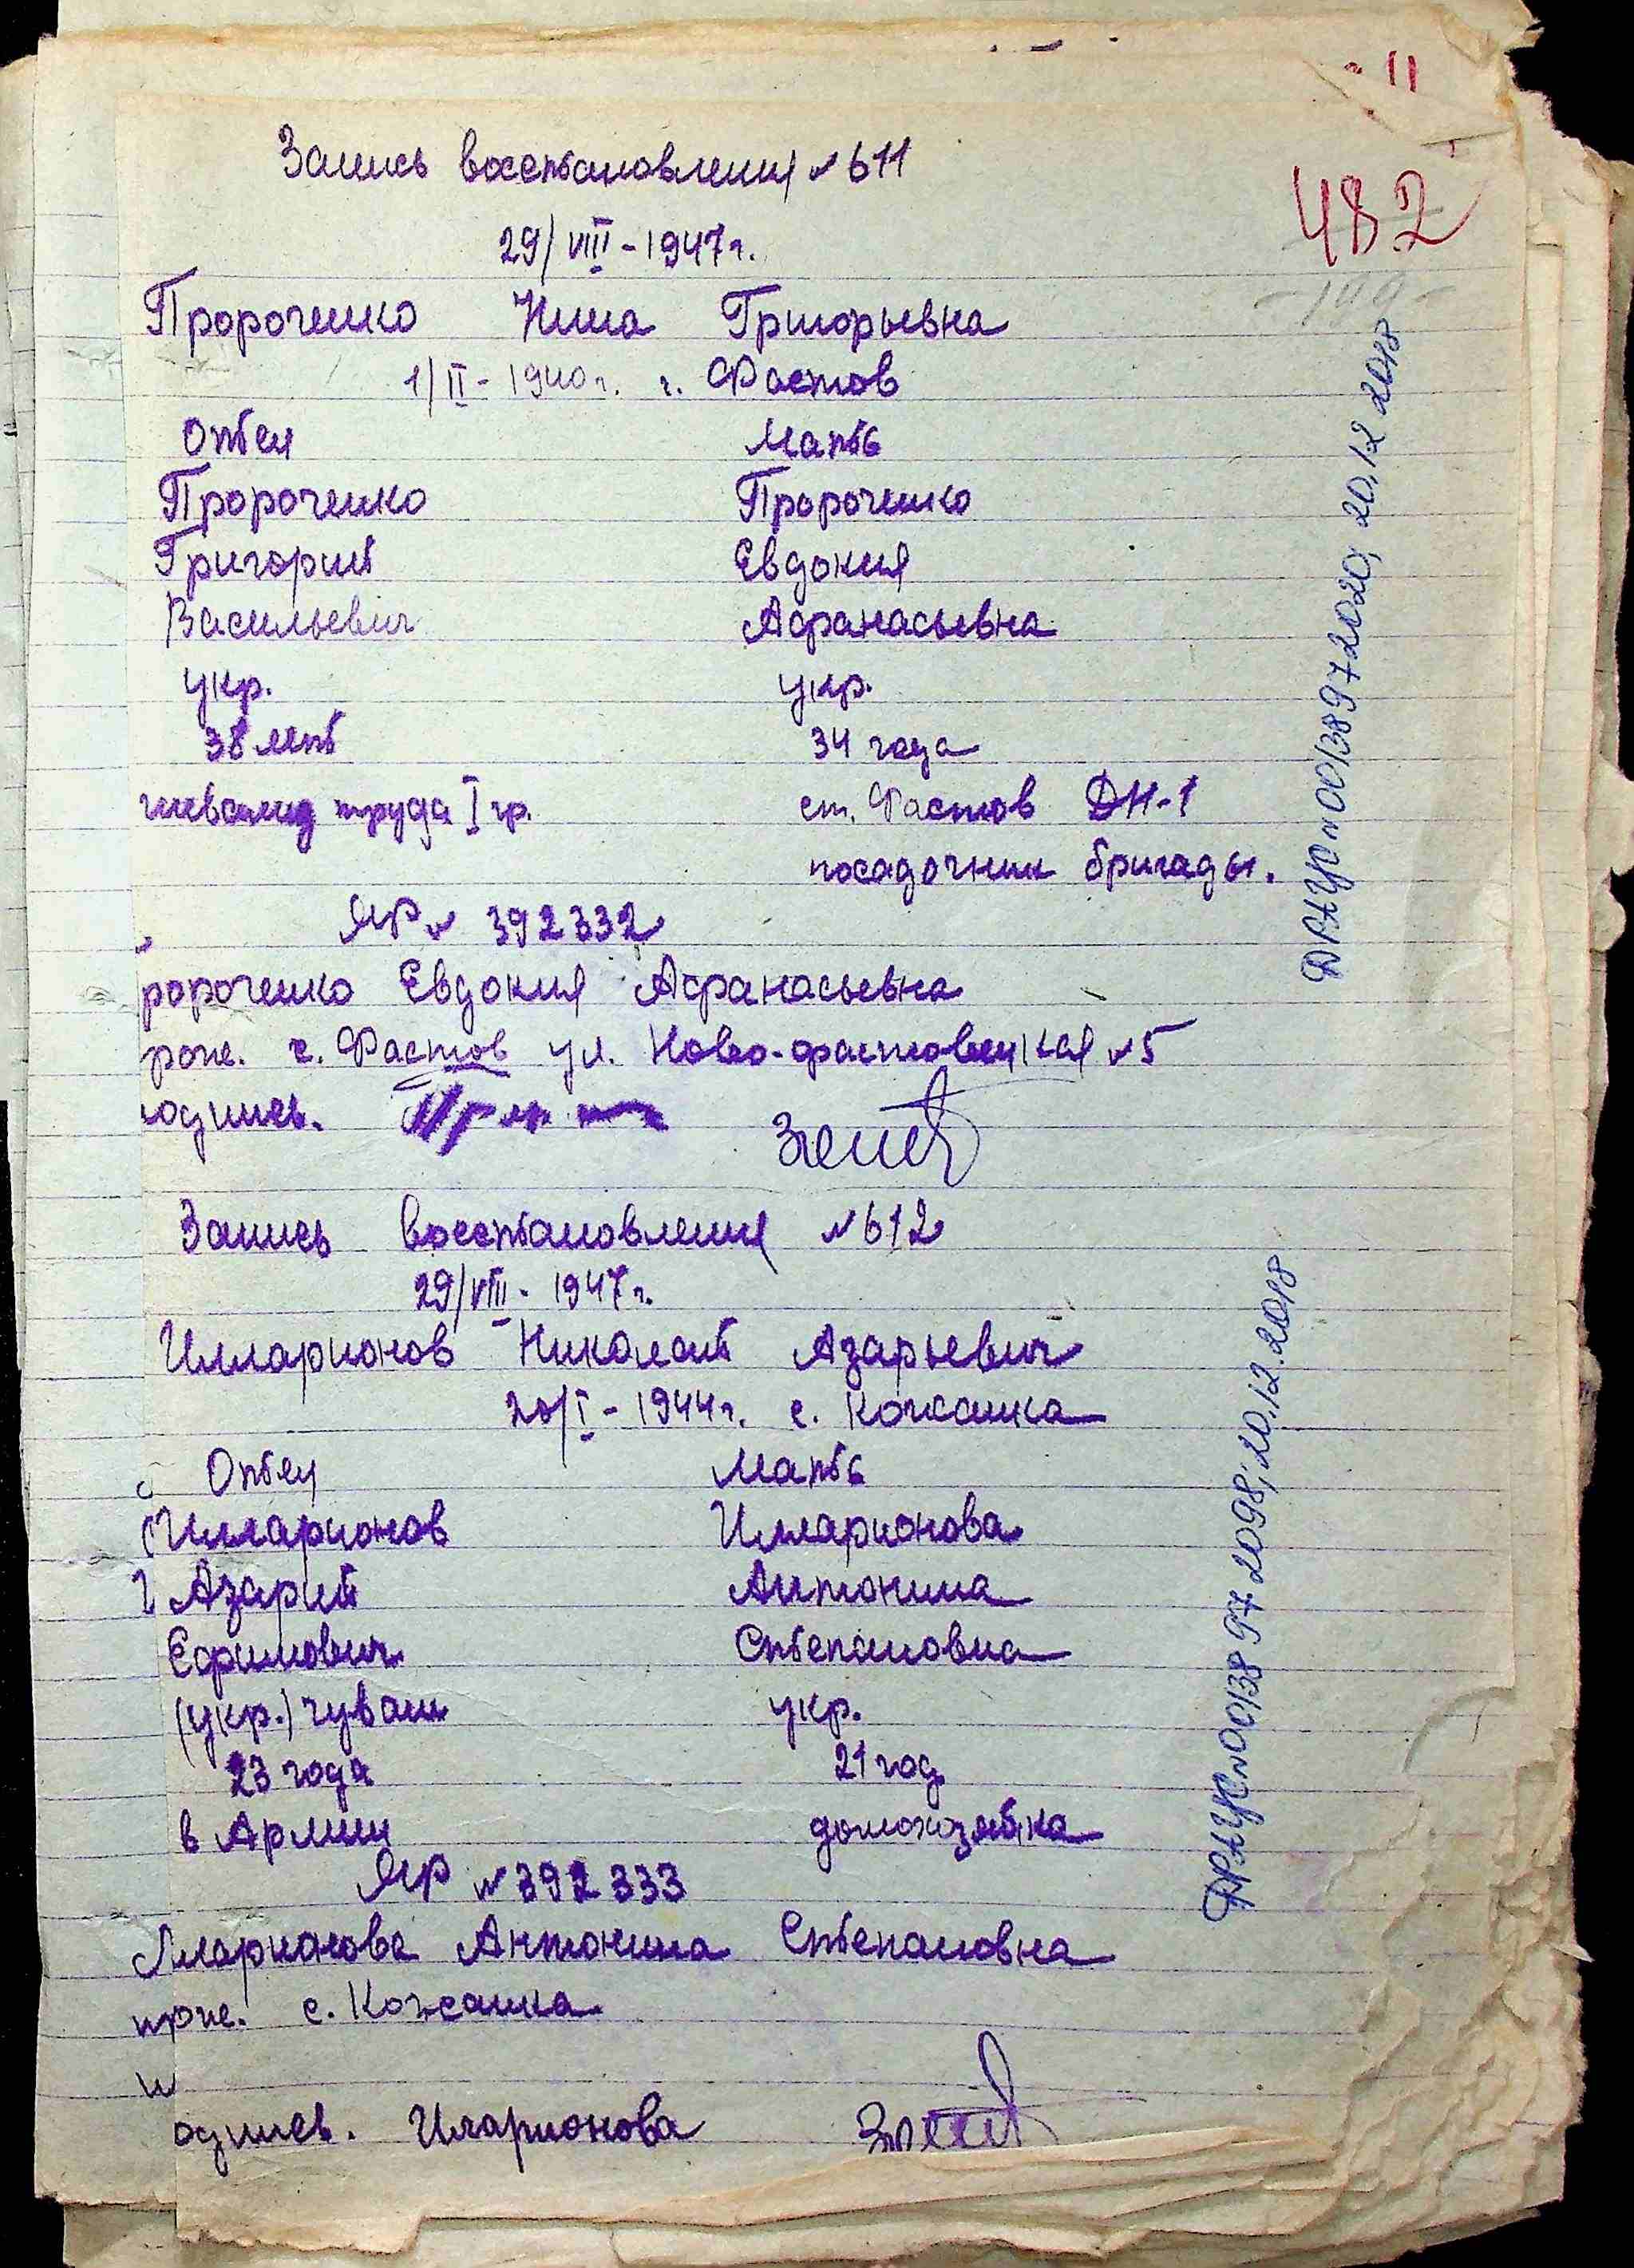 11
482
Запись восстановления № 611
29/VIII - 1947 г.
Пророченко Нина Григорьевна
1/II - 1940 г. г. Фастов
Отец Мать
Пророченко Пророченко
Григорий Евдокия
Васильевич Афанасьевна
укр. укр.
38 лет 34 года
инвалид труда I гр. ст. Фастов ДН-1
посадочник бригады.
ЯР № 392332
ророченко Евдокия Афанасьевна
рож. г. Фастов ул. Ново-фастовецкая № 5
одпись.
Запись восстановления № 612
29/VIII - 1947 г.
Илларионов Николай Азарьевич
20/I - 1944 г. с. Кожанка
Отец Мать
Илларионов Илларионова
Азарий Антонина
Ефимович Степановна
(укр.) чуваш укр.
23 года 21 год
в Армии домохозяйка
ЯР № 392333
Лларионова Антонина Степановна
прож. с. Кожанка
одпись. Иларионова
ДРАЦС № 00138972020; 20.12.2018
ДРАЦС № 00138972098; 20.12.2018